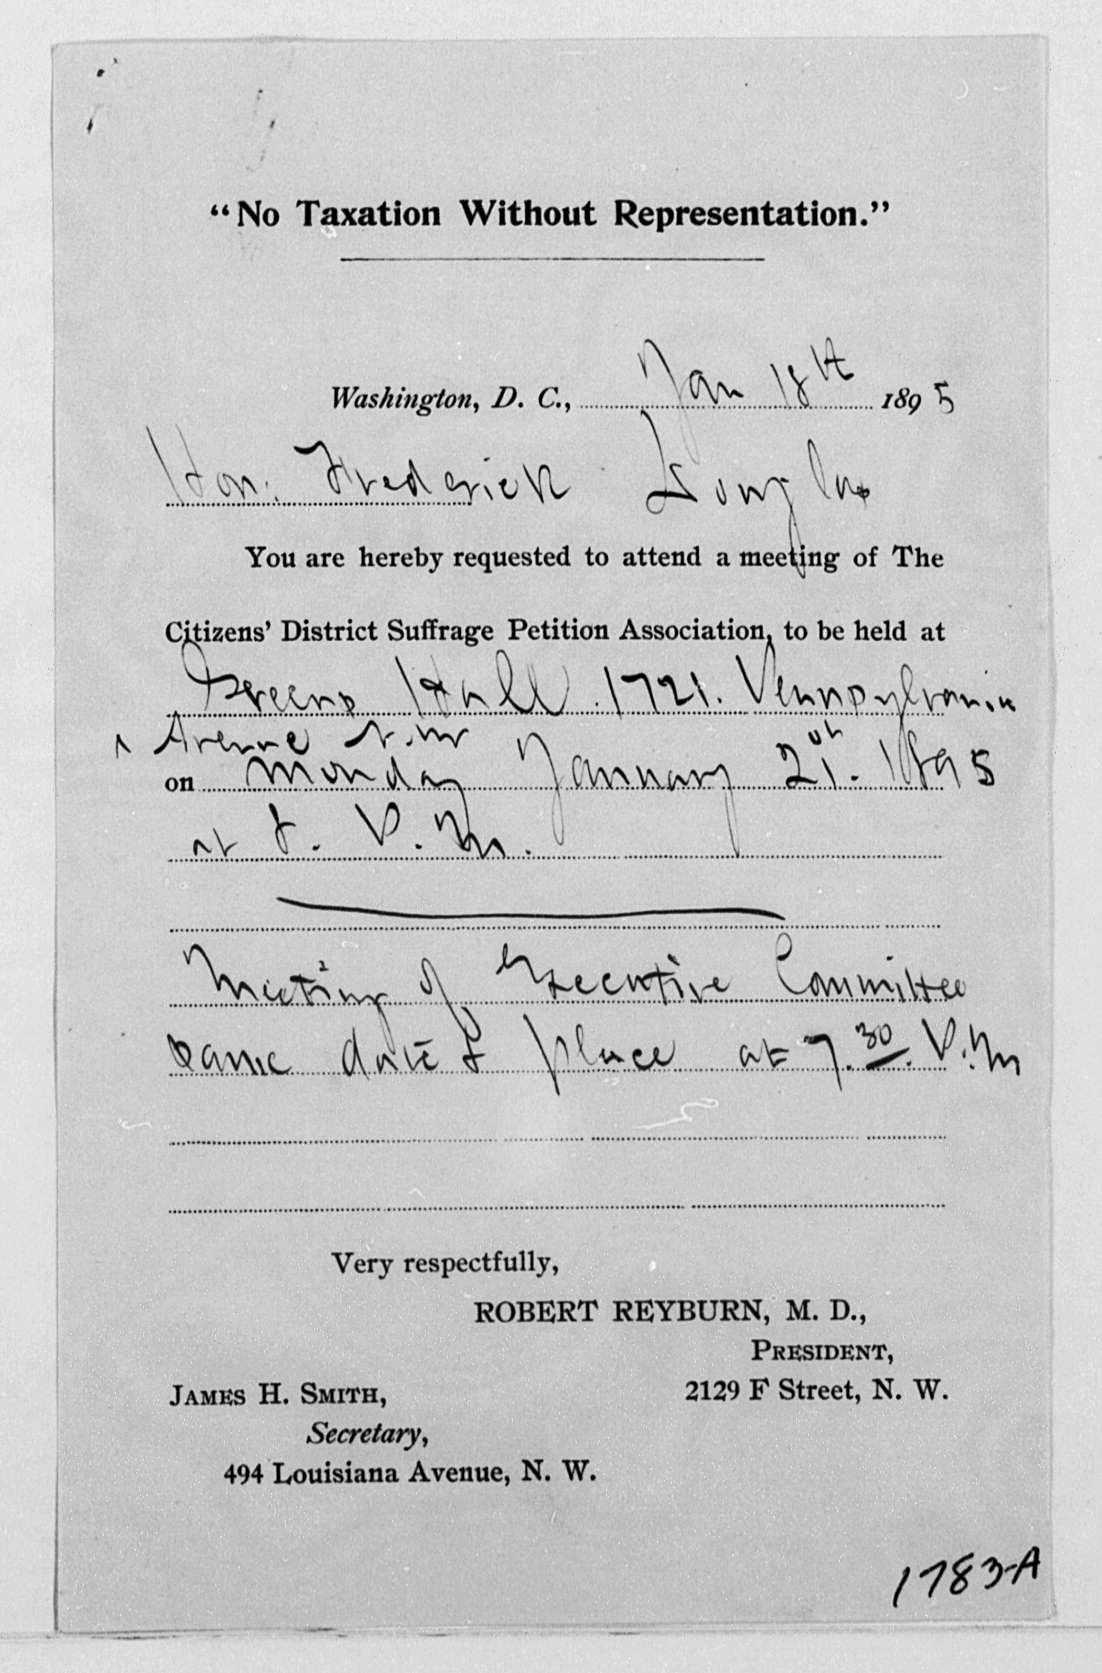 “No Taxation Without Representation.”
Washington, D. C., Jan 18th 1895
Hon. Frederick Douglas
You are hereby requested to attend a meeting of The
Citizens’ District Suffrage Petition Association, to be held at
Greens Hall 1721. Pennsylvania
Avenue N.W
on Monday January 21st. 1895
at 8. P.M.
Meeting of Executive Committee
same date & place at 7.30. P.M
Very respectfully,
ROBERT REYBURN, M. D.,
PRESIDENT,
2129 F Street, N. W.
JAMES H. SMITH,
Secretary,
494 Louisiana Avenue, N. W.
1783-A